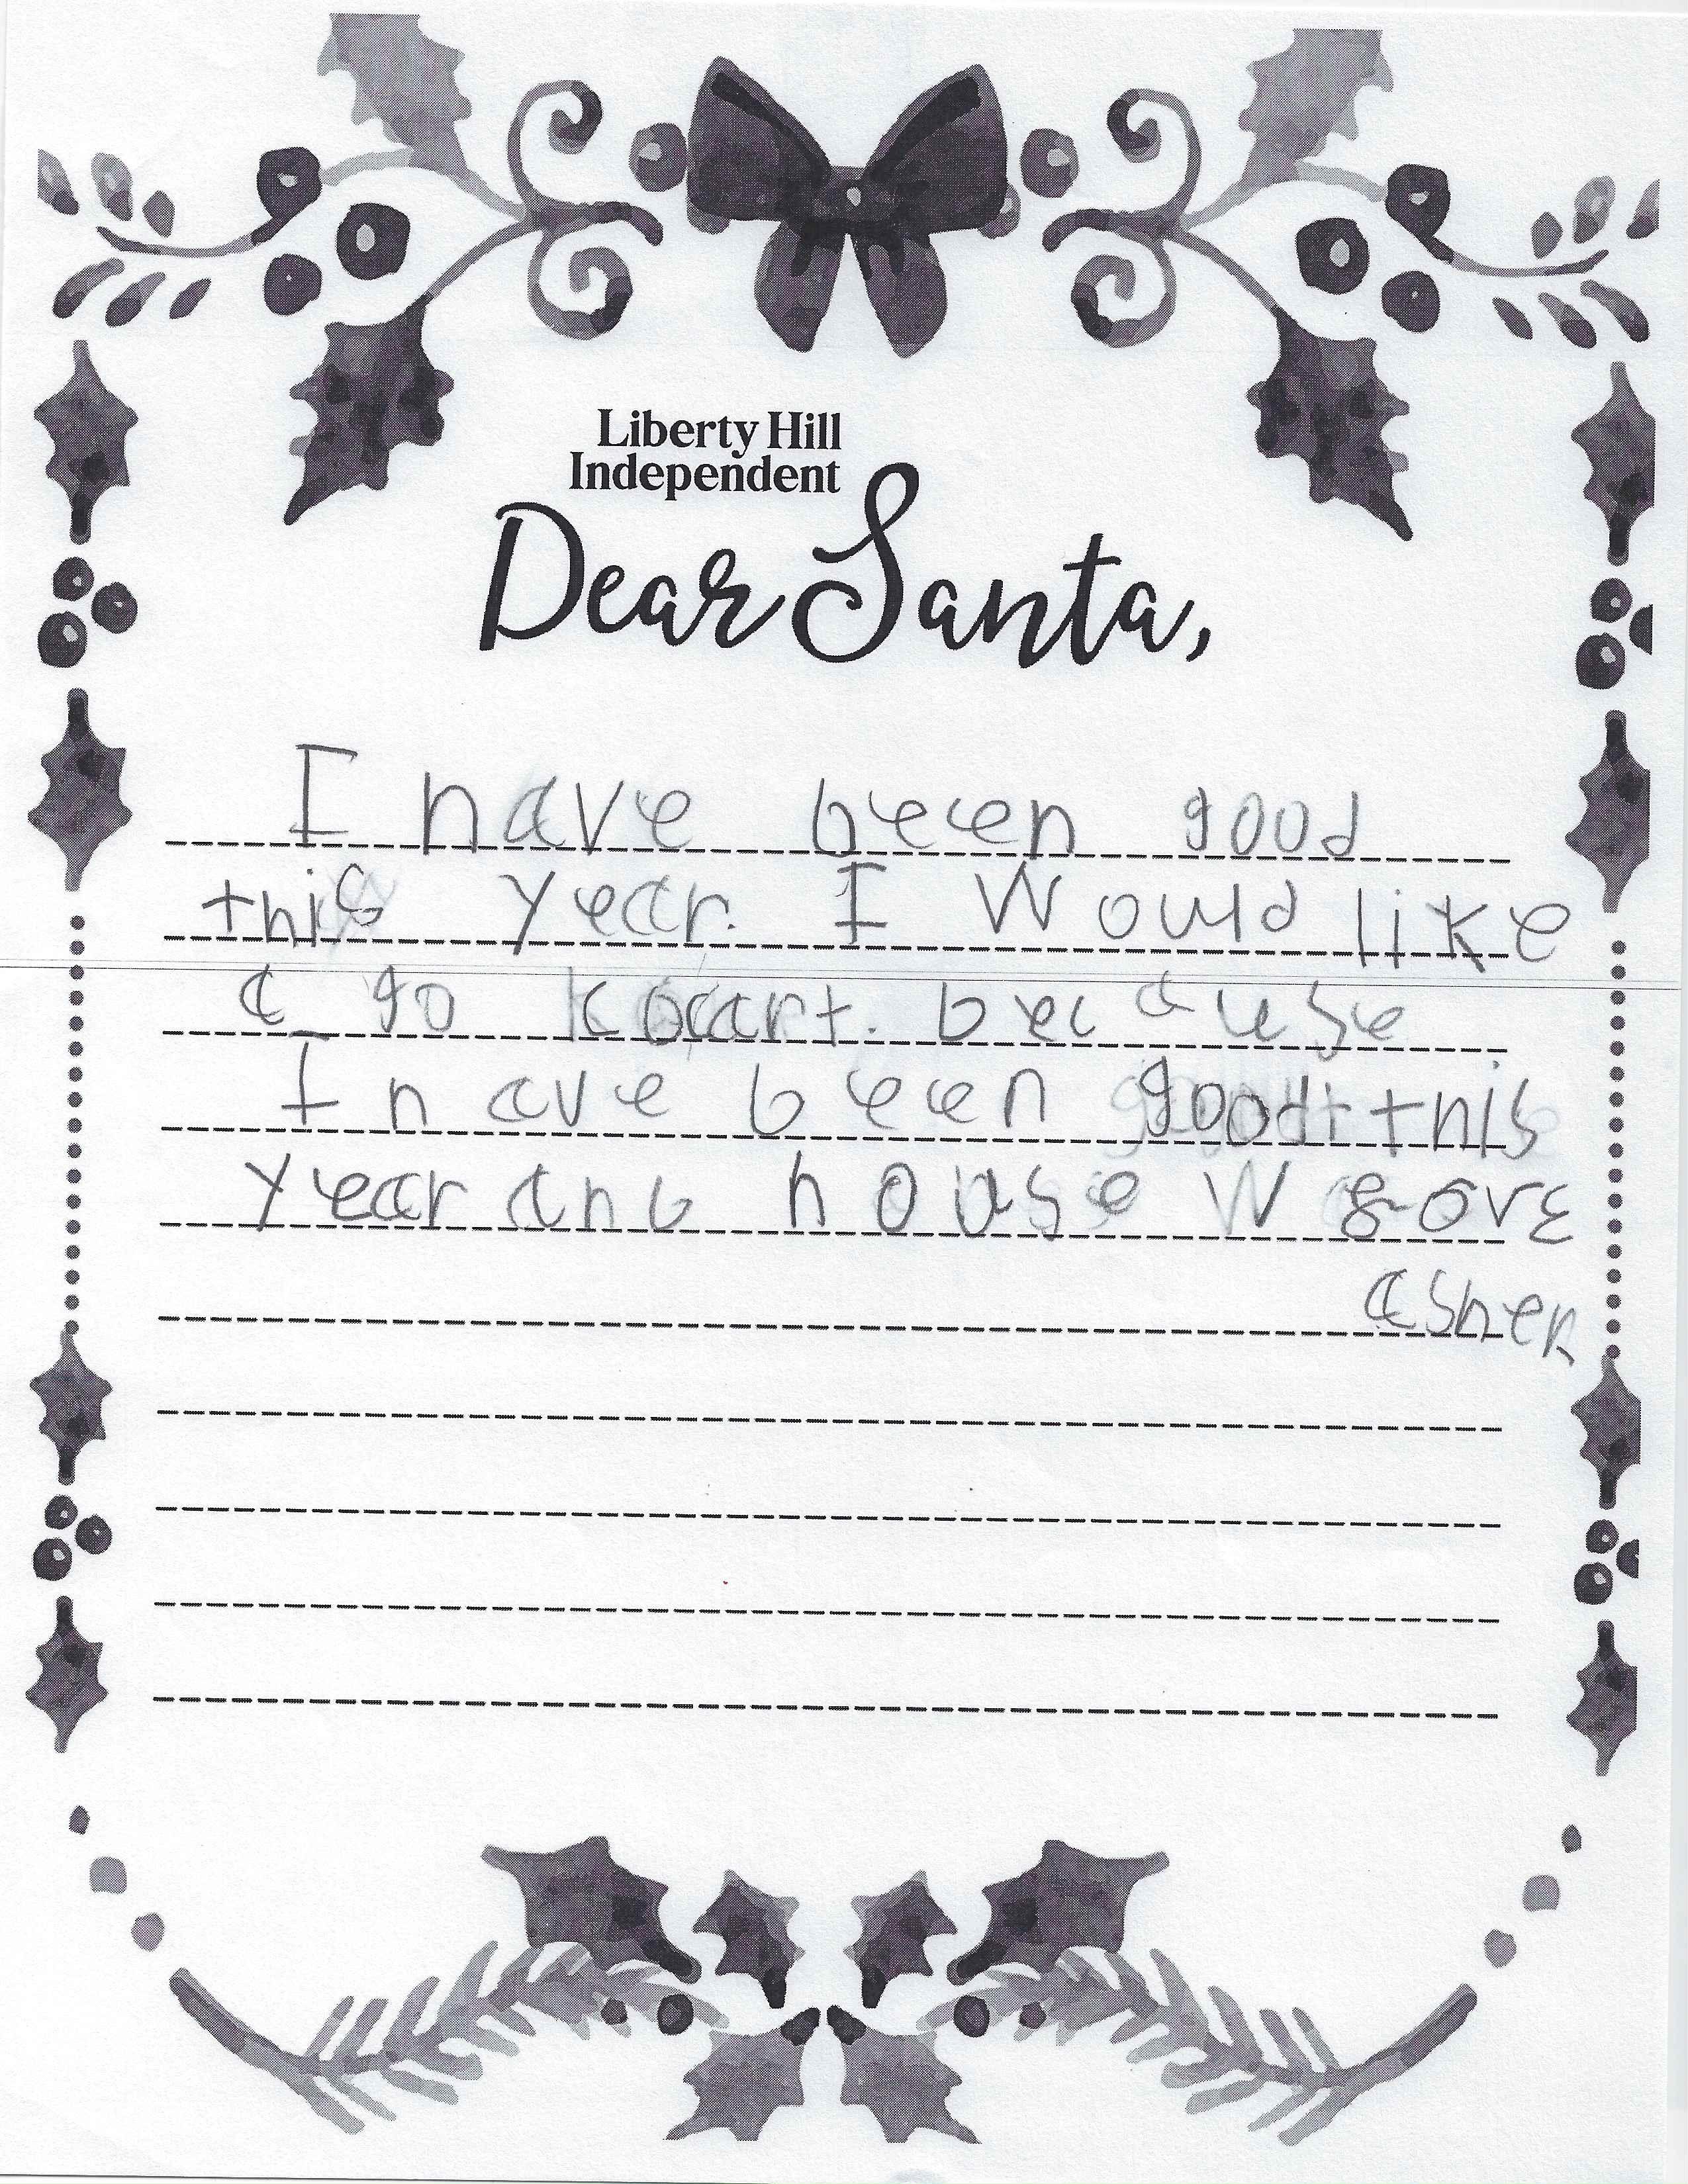 Liberty Hill
Independent
Dear Santa,
I have been good
this year. I would like
a go kart. because
I have been good this
year and house W
asher